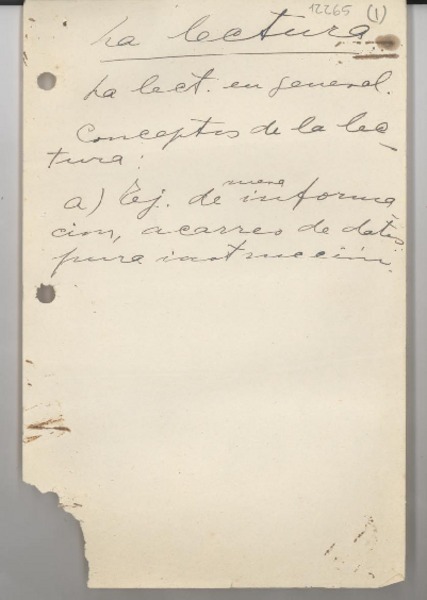 12265 (1)
La lectura
La lect. en general.
Conceptos de la lec-
tura:
a) Ej. de mera informa
cion, acarreo de datos,
pura instrucción.